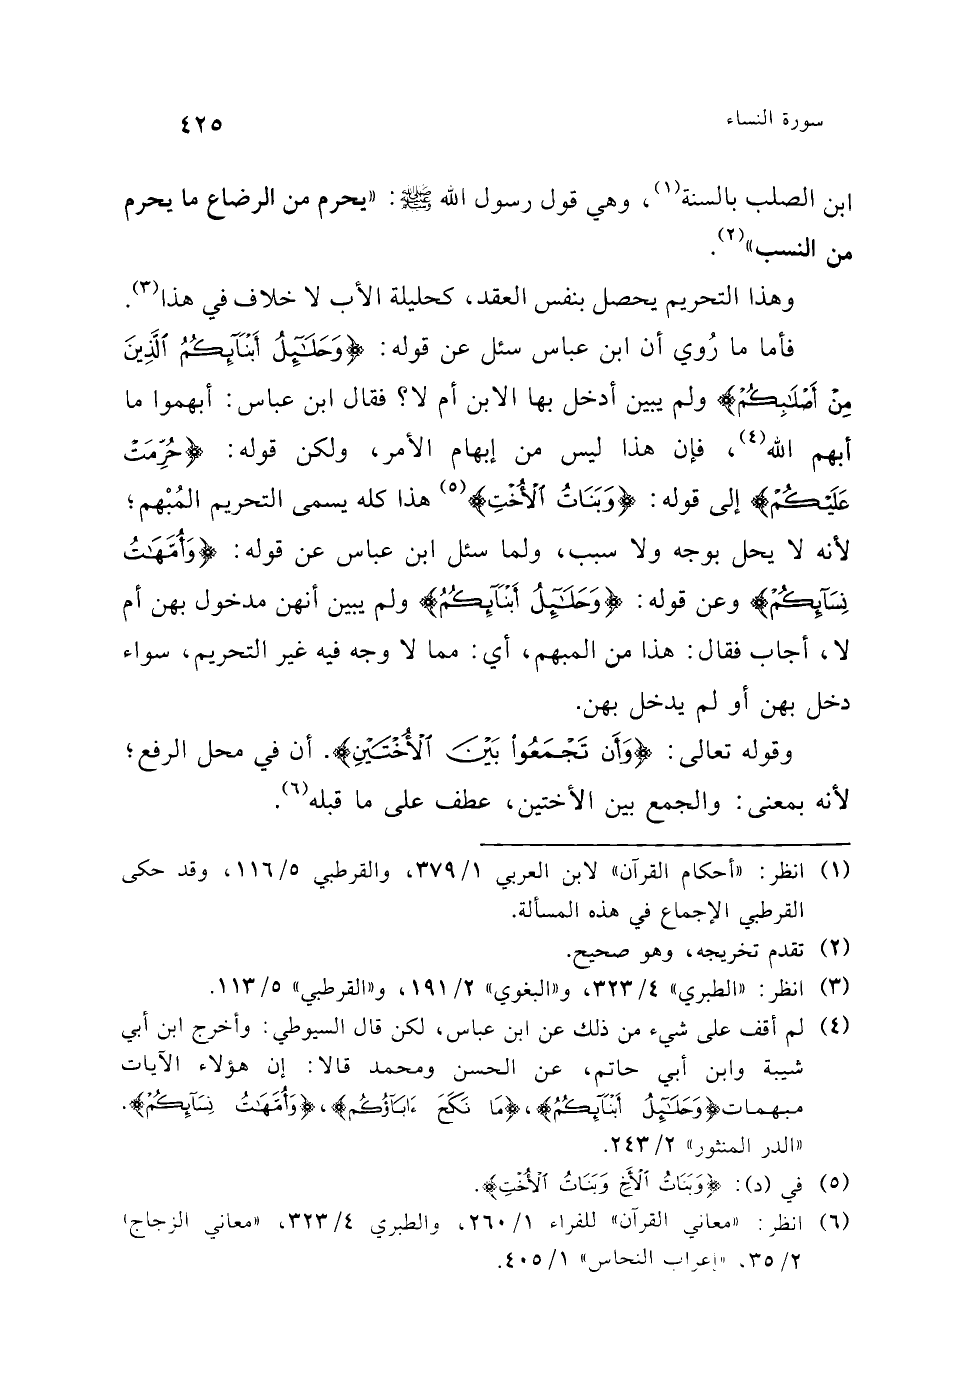 سورة النساء ٤٢٥
ابن الصلب بالسنة(١)، وهي قول رسول الله ﷺ: «يحرم من الرضاع ما يحرم
من النسب»(٢).
وهذا التحريم يحصل بنفس العقد، كحليلة الأب لا خلاف في هذا(٣).
فأما ما رُوي أن ابن عباس سئل عن قوله: ﴿وَحَلَٰٓئِلُ أَبْنَآئِكُمُ ٱلَّذِينَ
مِنْ أَصْلَٰبِكُمْ﴾ ولم يبين أدخل بها الابن أم لا؟ فقال ابن عباس: أبهموا ما
أبهم الله(٤)، فإن هذا ليس من إبهام الأمر، ولكن قوله: ﴿حُرِّمَتْ
عَلَيْكُمْ﴾ إلى قوله: ﴿وَبَنَاتُ ٱلْأُخْتِ﴾(٥) هذا كله يسمى التحريم المُبْهم؛
لأنه لا يحل بوجه ولا سبب، ولما سئل ابن عباس عن قوله: ﴿وَأُمَّهَٰتُ
نِسَآئِكُمْ﴾ وعن قوله: ﴿وَحَلَٰٓئِلُ أَبْنَآئِكُمُ﴾ ولم يبين أنهن مدخول بهن أم
لا، أجاب فقال: هذا من المبهم، أي: مما لا وجه فيه غير التحريم، سواء
دخل بهن أو لم يدخل بهن.
وقوله تعالى: ﴿وَأَن تَجْمَعُوا۟ بَيْنَ ٱلْأُخْتَيْنِ﴾. أن في محل الرفع؛
لأنه بمعنى: والجمع بين الأختين، عطف على ما قبله(٦).
(١) انظر: «أحكام القرآن» لابن العربي ١/ ٣٧٩، والقرطبي ٥/ ١١٦، وقد حكى
القرطبي الإجماع في هذه المسألة.
(٢) تقدم تخريجه، وهو صحيح.
(٣) انظر: «الطبري» ٤/ ٣٢٣، و«البغوي» ٢/ ١٩١، و«القرطبي» ٥/ ١١٣.
(٤) لم أقف على شيء من ذلك عن ابن عباس، لكن قال السيوطي: وأخرج ابن أبي
شيبة وابن أبي حاتم، عن الحسن ومحمد قالا: إن هؤلاء الآيات
مبهمات﴿وَحَلَٰٓئِلُ أَبْنَآئِكُمُ﴾، ﴿مَا نَكَحَ ءَابَآؤُكُم﴾، ﴿وَأُمَّهَٰتُ نِسَآئِكُمْ﴾.
«الدر المنثور» ٢/ ٢٤٣.
(٥) في (د): ﴿وَبَنَاتُ ٱلْأَخِ وَبَنَاتُ ٱلْأُخْتِ﴾.
(٦) انظر: «معاني القرآن» للفراء ١/ ٢٦٠، والطبري ٤/ ٣٢٣، «معاني الزجاج»
٢/ ٣٥، «إعراب النحاس» ١/ ٤٠٥.